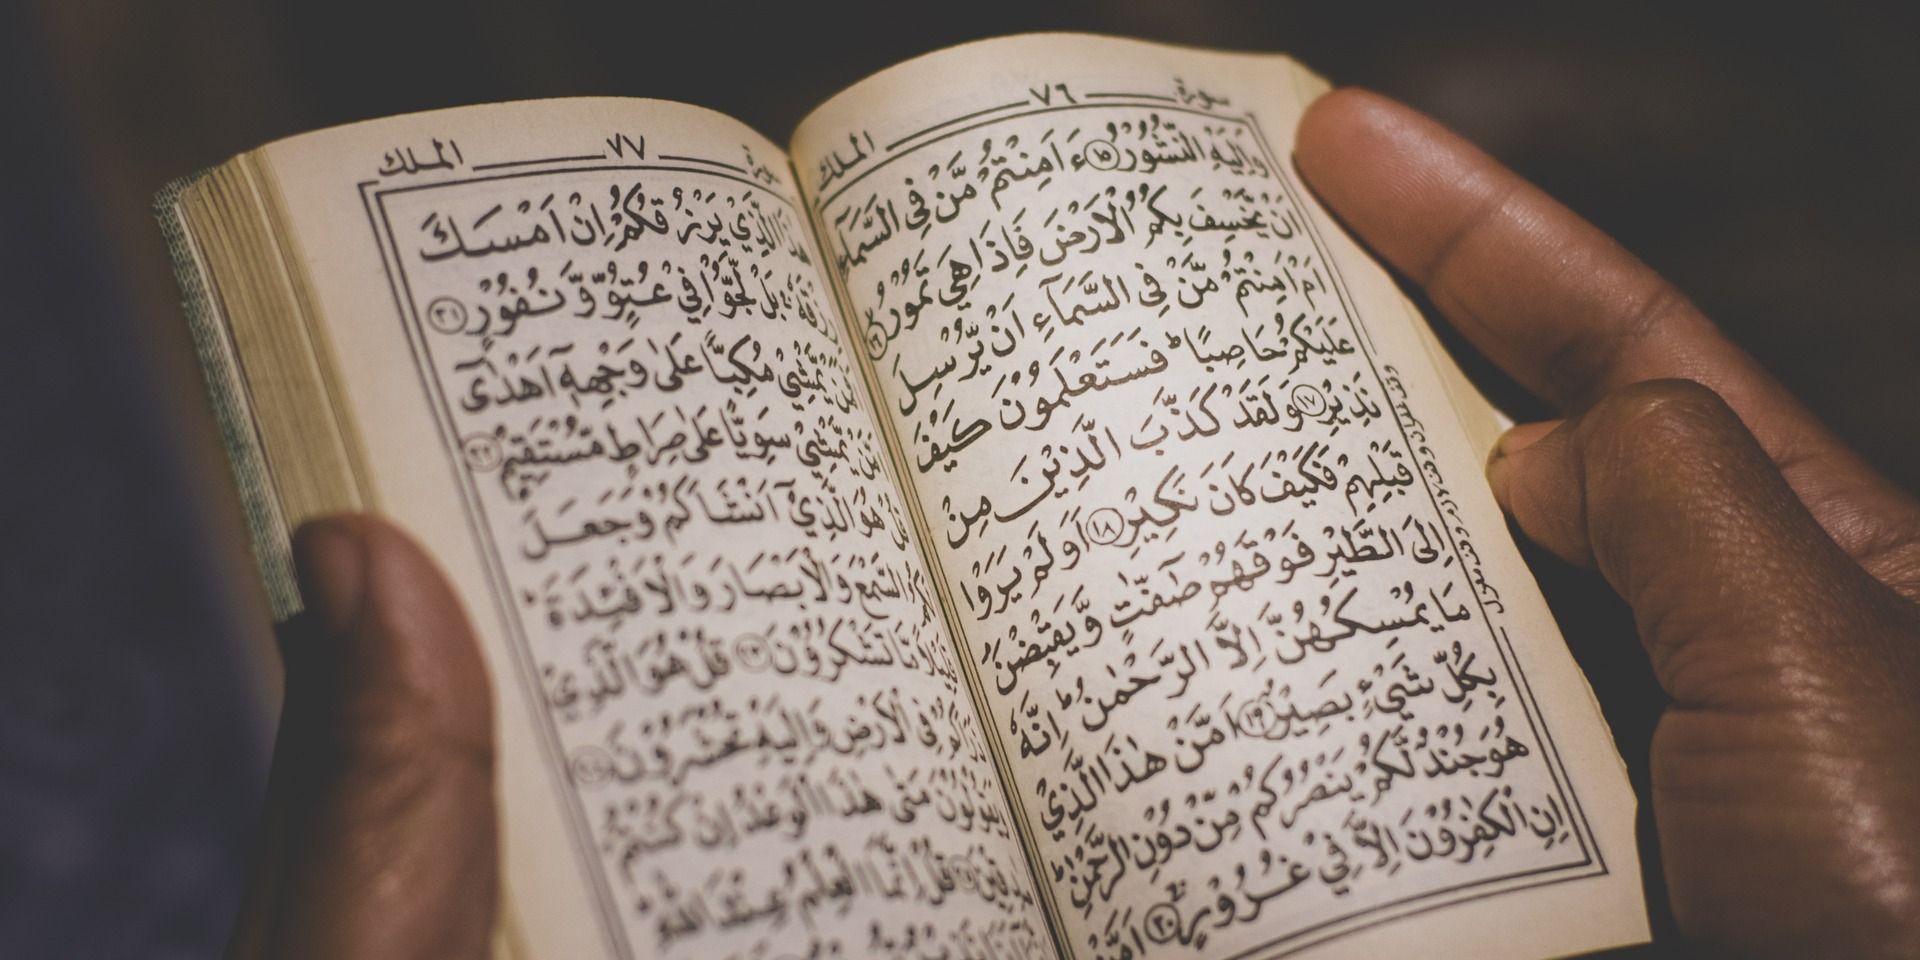 سورة ٧٦ الملك
وَاِلَيْهِ النُّشُوْرُ ١٥ ءَاَمِنْتُمْ مَّنْ فِي السَّمَآءِ
اَنْ يَّخْسِفَ بِكُمُ الْاَرْضَ فَاِذَا هِيَ تَمُوْرُ ١٦
اَمْ اَمِنْتُمْ مَّنْ فِي السَّمَآءِ اَنْ يُّرْسِلَ
عَلَيْكُمْ حَاصِبًا ؕ فَسَتَعْلَمُوْنَ كَيْفَ
نَذِيْرِ ١٧ وَلَقَدْ كَذَّبَ الَّذِيْنَ مِنْ
قَبْلِهِمْ فَكَيْفَ كَانَ نَكِيْرِ ١٨ اَوَلَمْ يَرَوْا
اِلَى الطَّيْرِ فَوْقَهُمْ صٰٓفّٰتٍ وَّيَقْبِضْنَ
مَا يُمْسِكُهُنَّ اِلَّا الرَّحْمٰنُ ؕ اِنَّهٗ
بِكُلِّ شَيْءٍ بَصِيْرٌ ١٩ اَمَّنْ هٰذَا الَّذِيْ
هُوَ جُنْدٌ لَّكُمْ يَنْصُرُكُمْ مِّنْ دُوْنِ الرَّحْمٰنِ ؕ
اِنِ الْكٰفِرُوْنَ اِلَّا فِيْ غُرُوْرٍ ٢٠ اَمَّنْ
سورة ٧٧ الملك
هٰذَا الَّذِيْ يَرْزُقُكُمْ اِنْ اَمْسَكَ
رِزْقَهٗ ۚ بَلْ لَّجُّوْا فِيْ عُتُوٍّ وَّنُفُوْرٍ ٢١
يَّمْشِيْ مُكِبًّا عَلٰى وَجْهِهٖٓ اَهْدٰٓى
يَّمْشِيْ سَوِيًّا عَلٰى صِرَاطٍ مُّسْتَقِيْمٍ ٢٢
قُلْ هُوَ الَّذِيْٓ اَنْشَاَكُمْ وَجَعَلَ
لَكُمُ السَّمْعَ وَالْاَبْصَارَ وَالْاَفْئِدَةَ ؕ
قَلِيْلًا مَّا تَشْكُرُوْنَ ٢٣ قُلْ هُوَ الَّذِيْ
فِي الْاَرْضِ وَاِلَيْهِ تُحْشَرُوْنَ ٢٤
وَيَقُوْلُوْنَ مَتٰى هٰذَا الْوَعْدُ اِنْ كُنْتُمْ
قُلْ اِنَّمَا الْعِلْمُ عِنْدَ اللّٰهِ